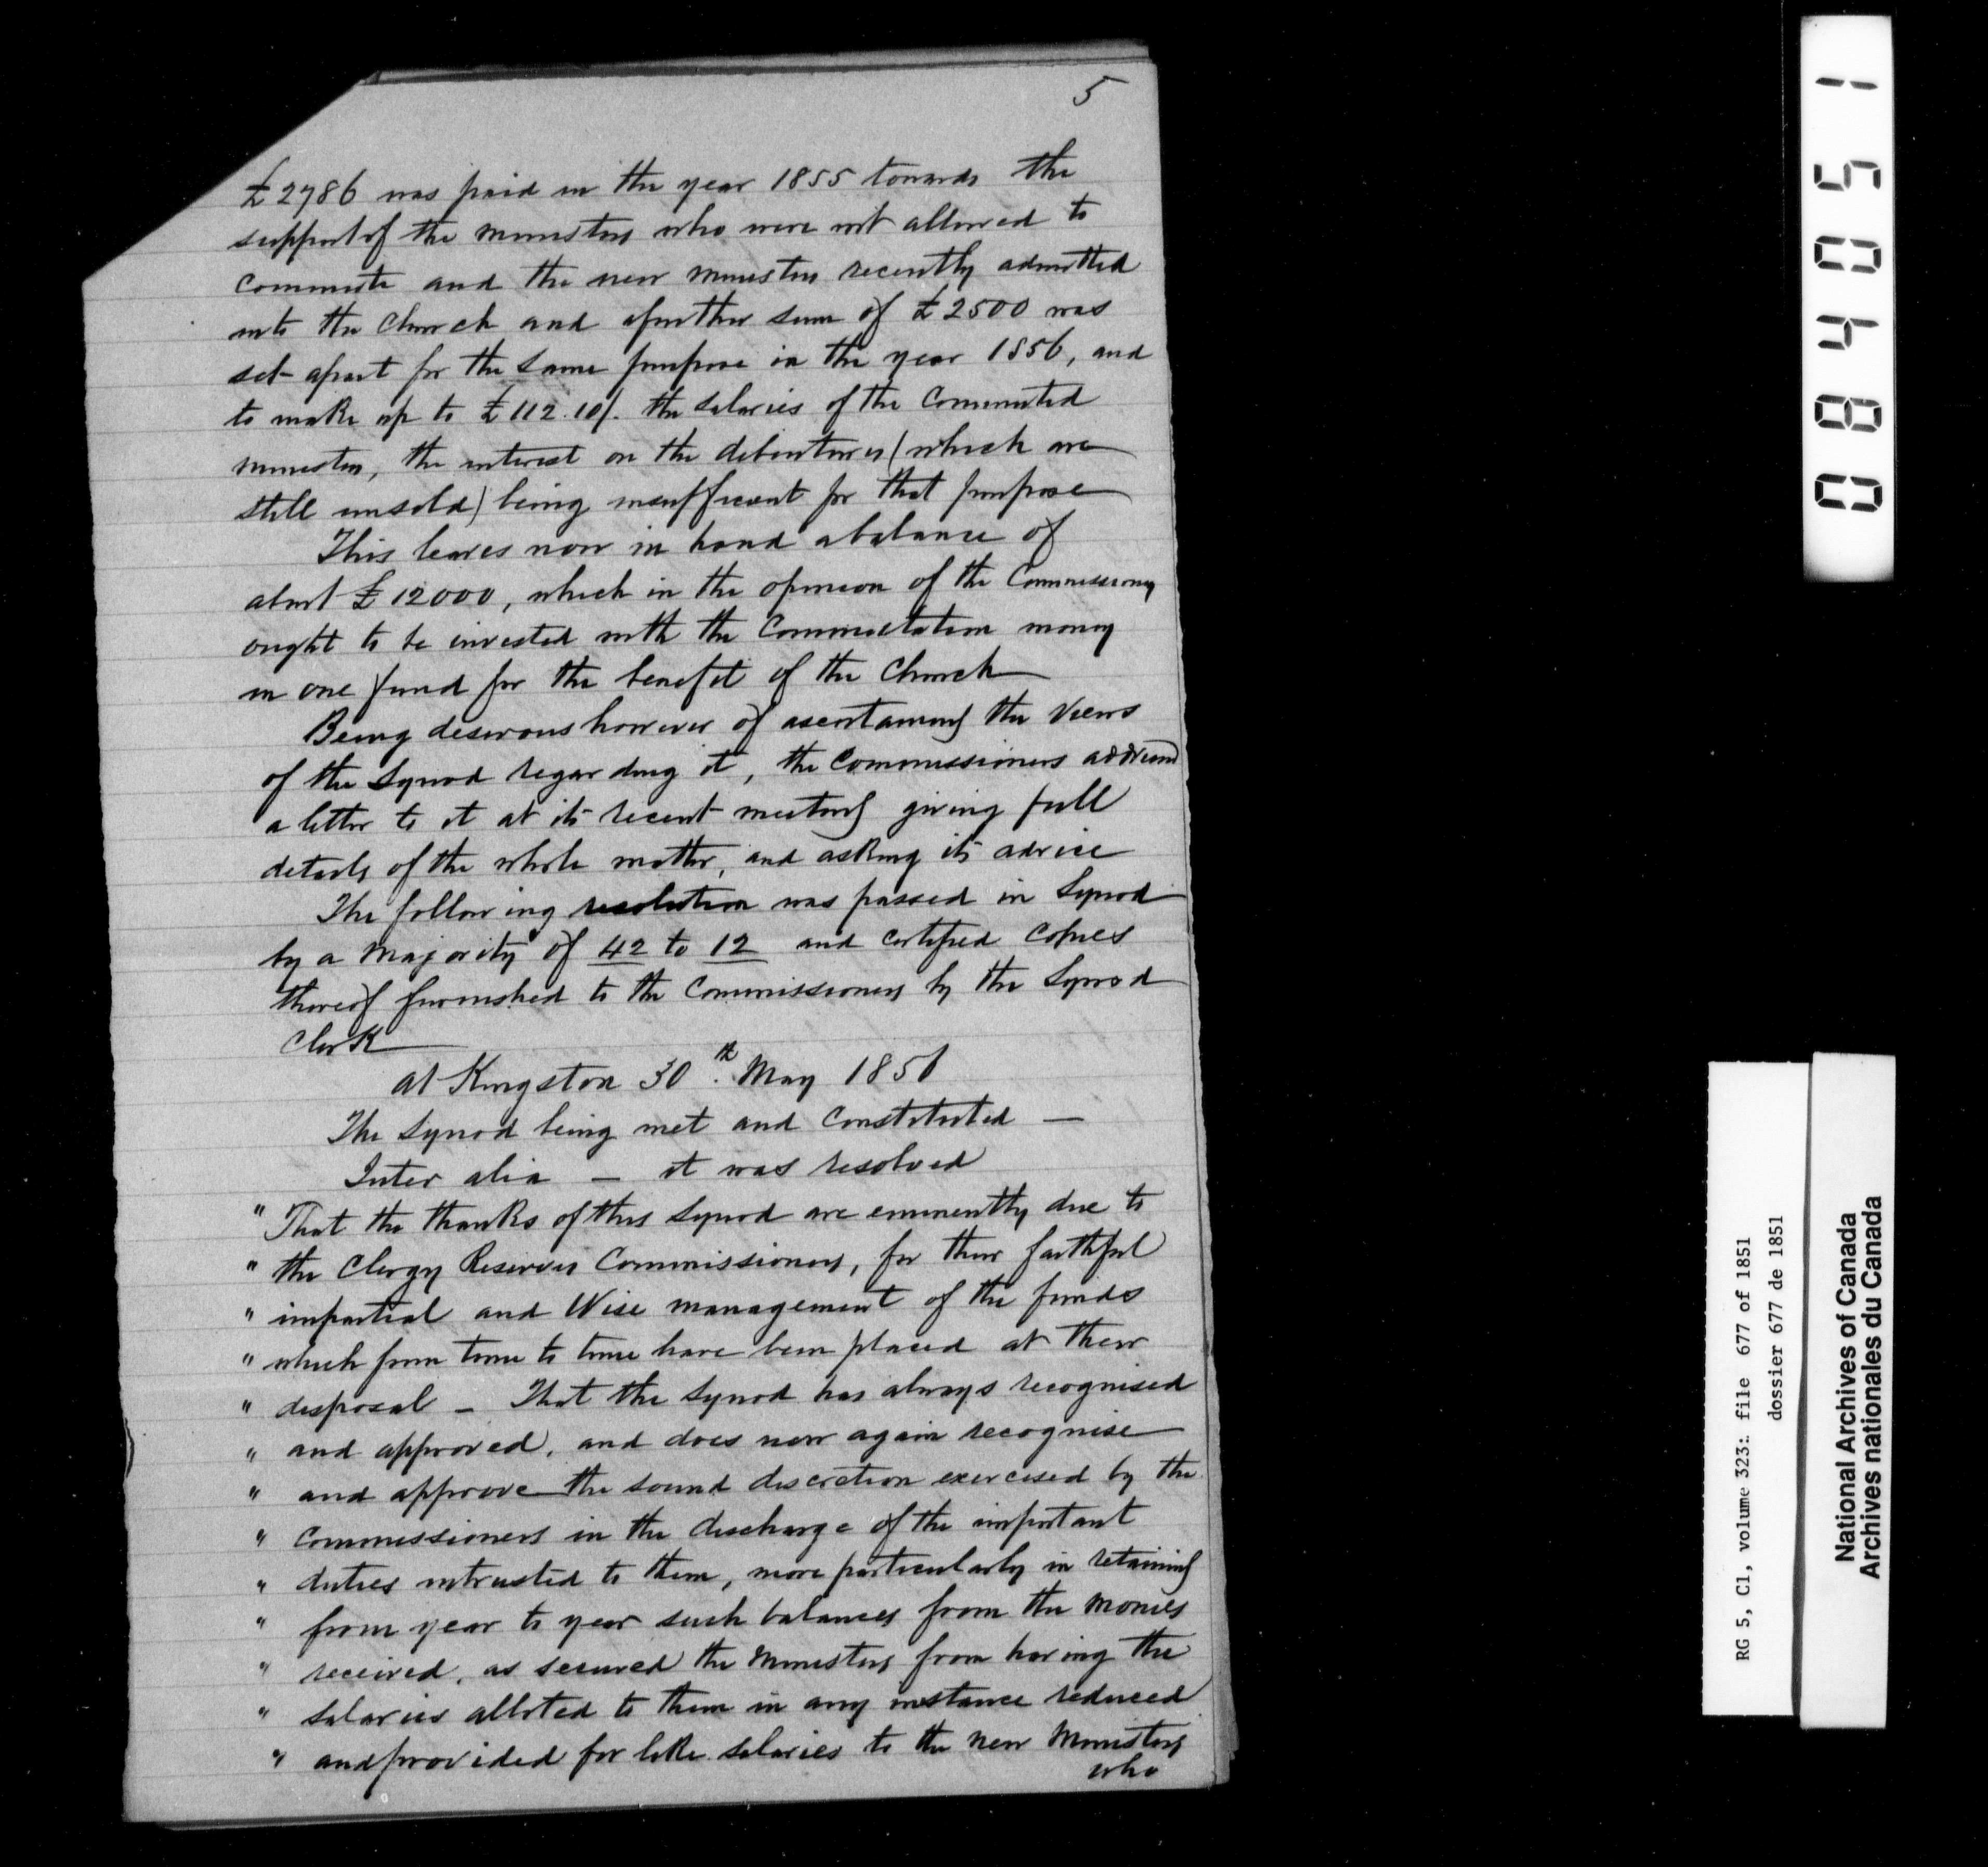 5
£2786 was paid in the year 1855 towards the
support of the ministers who were not allowed to
commute and the new ministers recently admitted
into the Church and a further sum of £2500 was
set apart for the same purpose in the year 1856, and
to make up to £112.10/. the salaries of the Commuted
ministers, the interest on the debentures (which are
still unsold) being insufficient for that purpose
This leaves now in hand a balance of
about £12000, which in the opinion of the Commissioners
ought to be invested with the Commutation money
in one fund for the benefit of the Church
Being desirous however of ascertaining the views
of the Synod regarding it, the Commissioners addressed
a letter to it at its recent meeting giving full
details of the whole matter, and asking its advice
The following resolution was passed in Synod
by a majority of 42 to 12 and certified copies
thereof furnished to the Commissioners by the Synod
Clerk
at Kingston 30th May 1856
The Synod being met and Constituted —
Inter alia — it was resolved
" That the thanks of this Synod are eminently due to
" the Clergy Reserves Commissioners, for their faithful
" impartial and Wise management of the funds
" which from time to time have been placed at their
" disposal — That the Synod has always recognised
" and approved, and does now again recognise
" and approve the sound discretion exercised by the
" Commissioners in the discharge of the important
" duties intrusted to them, more particularly in retaining
" from year to year such balances from the monies
" received, as secured the Ministers from having the
" salaries alloted to them in any instance reduced
" and provided for like salaries to the new Ministers
who
084051
RG 5, C1, volume 323: file 677 of 1851
dossier 677 de 1851
National Archives of Canada
Archives nationales du Canada